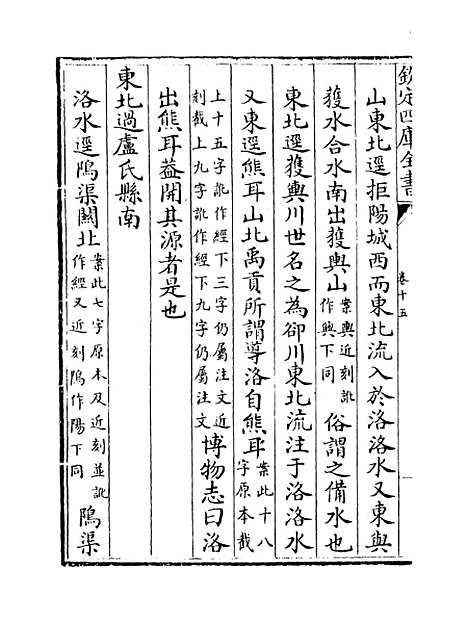 欽定四庫全書
卷十五
山東北逕拒陽城西而東北流入於洛洛水又東與
獲水合水南出獲輿山案輿近刻訛作與下同俗謂之備水也
東北逕獲輿川世名之為卻川東北流注于洛洛水
又東逕熊耳山北禹貢所謂導洛自熊耳案此十八字原本截
上十五字訛作經下三字仍屬注文近刻截上九字訛作經下九字仍屬注文博物志曰洛
出熊耳葢開其源者是也
東北過盧氏縣南
洛水逕隝渠關北案此七字原本及近刻並訛作經又近刻隝作陽下同隝渠